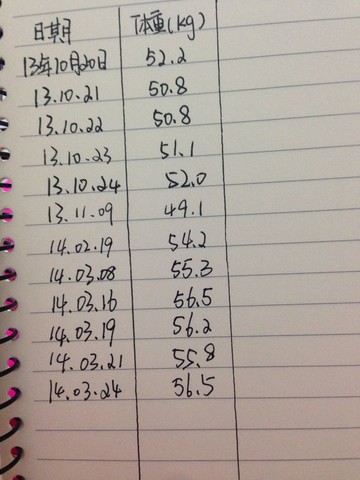 日期 体重(kg)
13年10月20日 52.2
13.10.21 50.8
13.10.22 50.8
13.10.23 51.1
13.10.24 52.0
13.11.09 49.1
14.02.19 54.2
14.03.08 55.3
14.03.16 56.5
14.03.19 56.2
14.03.21 55.8
14.03.24 56.5